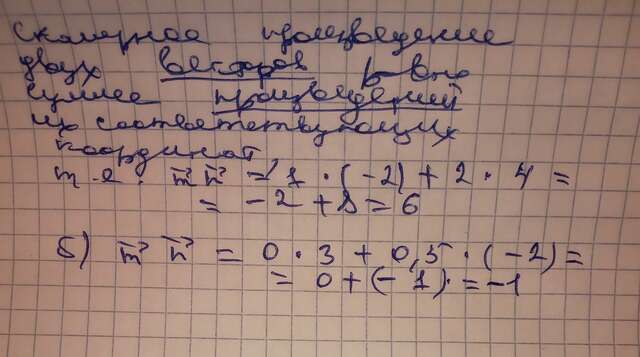 скалярное произведение
двух векторов равно
сумме произведений
их соответствующих
координат
т.е. m⃗ n⃗ = 1 · (-2) + 2 · 4 =
= -2 + 8 = 6
б) m⃗ n⃗ = 0 · 3 + 0,5 · (-2) =
= 0 + (-1) = -1